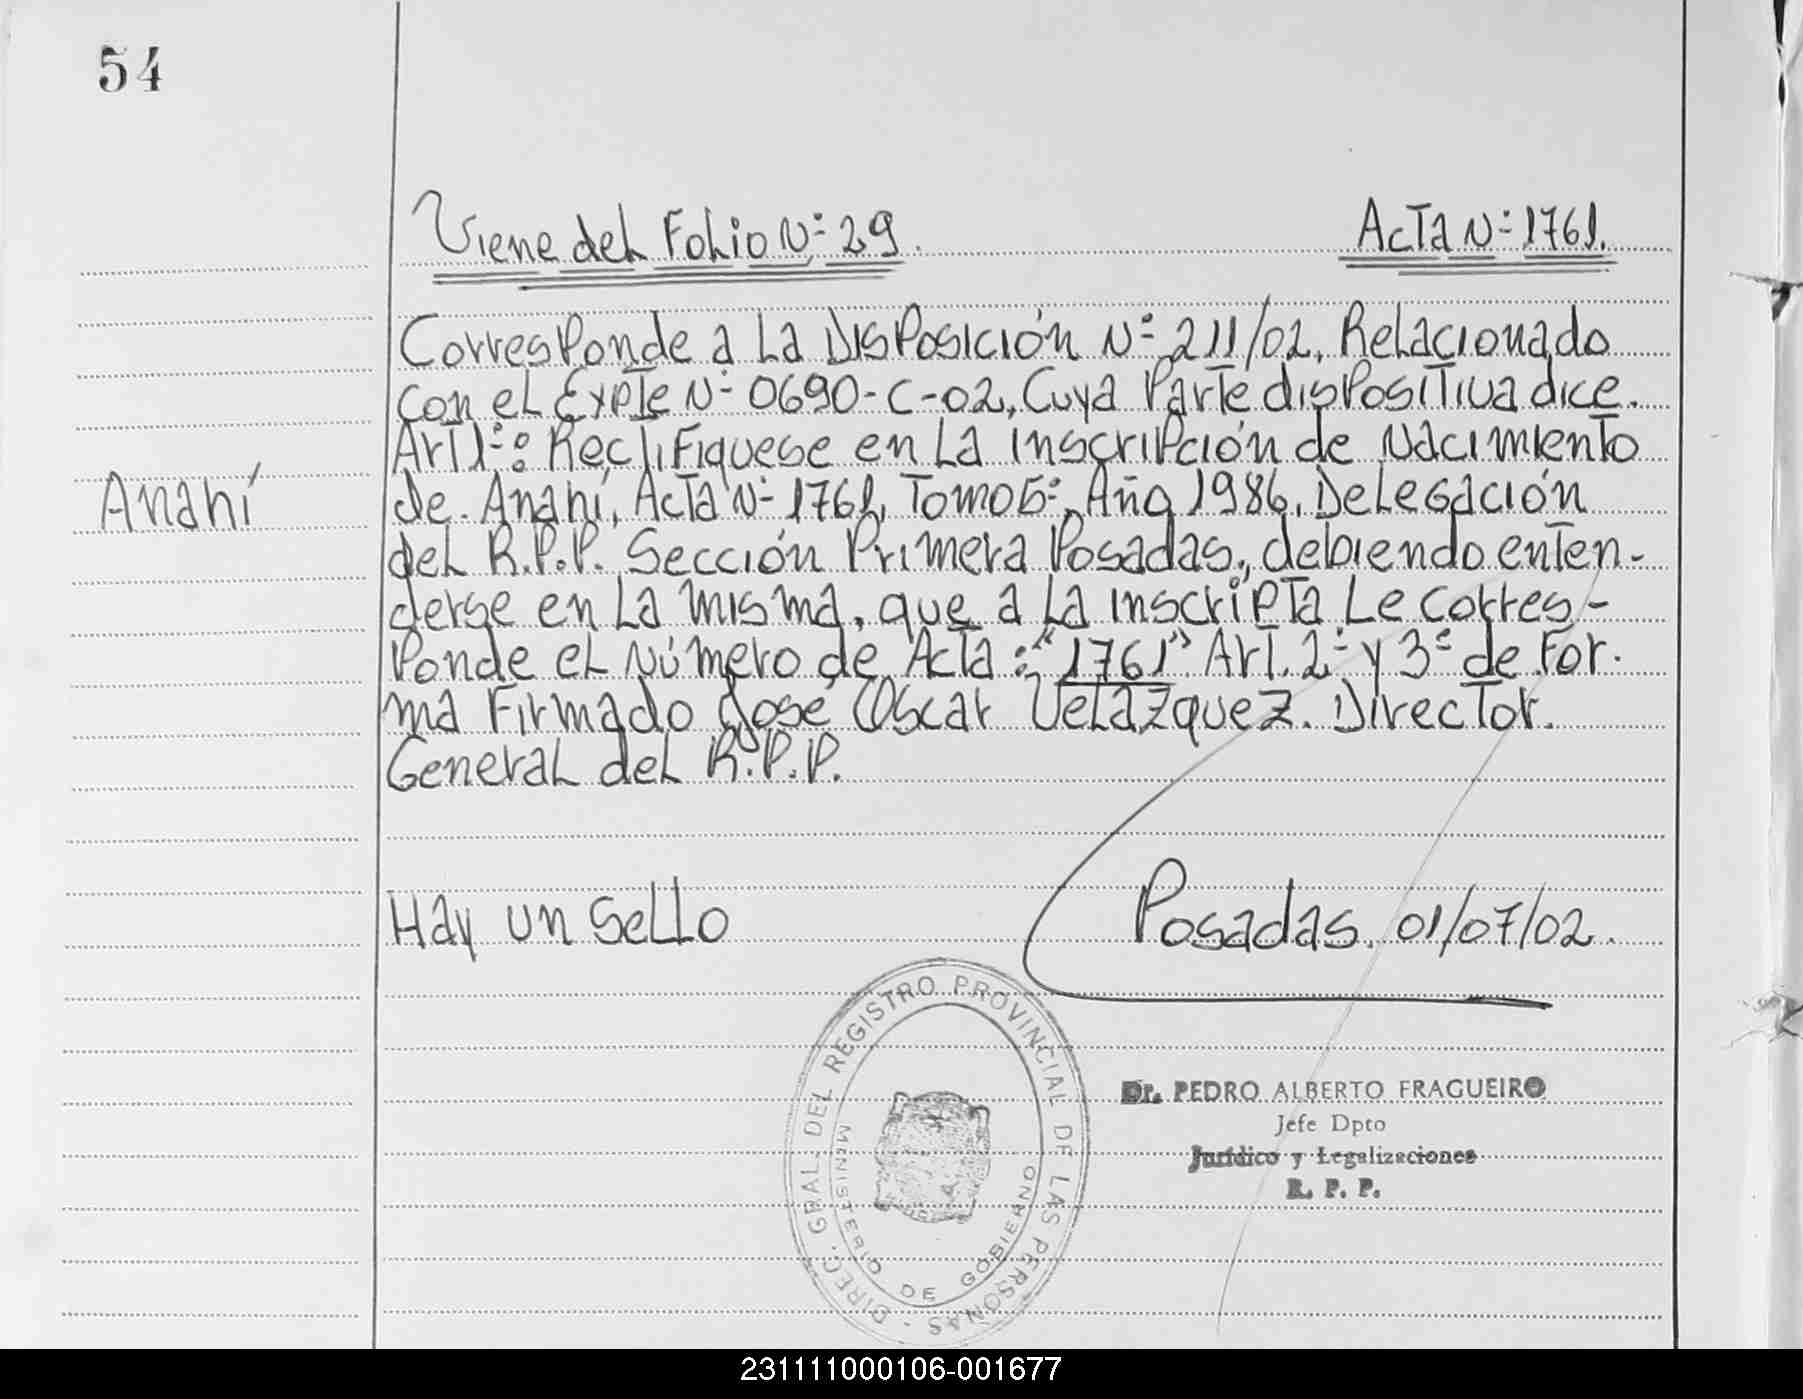 54
Viene del Folio Nº 29. Acta Nº 1761.
Corresponde a la Disposición Nº 211/02, Relacionado
con el Expte Nº 0690-C-02, Cuya Parte dispositiva dice.
Art 1º: Rectifiquese en la inscripción de Nacimiento
Anahí
de Anahí, Acta Nº 1761, Tomo 5º, Año 1986, Delegación
del R.P.P. Sección Primera Posadas, debiendo enten-
derse en la misma, que a la inscripta le corres-
ponde el Número de Acta: "1761" Art. 2º y 3º de For.
ma Firmado José Oscar Velázquez. Director.
General del R.P.P.
Hay un Sello Posadas, 01/07/02.
DIREC. GRAL. DEL REGISTRO PROVINCIAL DE LAS PERSONAS -
MINISTERIO DE GOBIERNO
Dr. PEDRO ALBERTO FRAGUEIRO
Jefe Dpto
Jurídico y Legalizaciones
R. P. P.
231111000106-001677